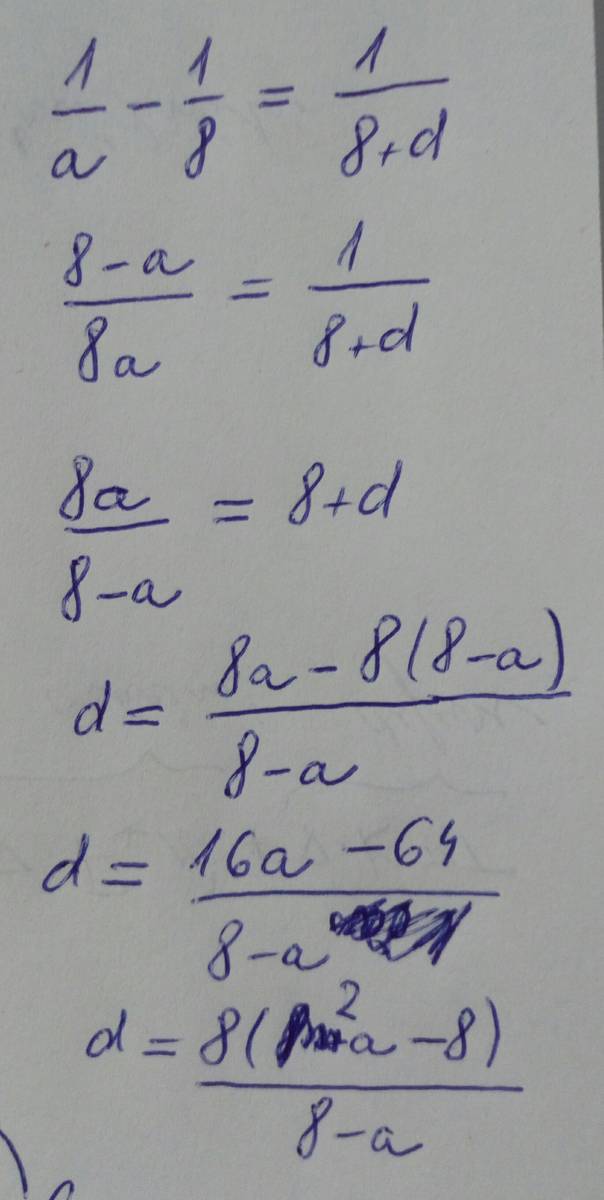 1/a - 1/8 = 1/(8+d)
(8-a)/(8a) = 1/(8+d)
8a/(8-a) = 8+d
d = (8a - 8(8-a))/(8-a)
d = (16a - 64)/(8-a)
d = 8(2a - 8)/(8-a)